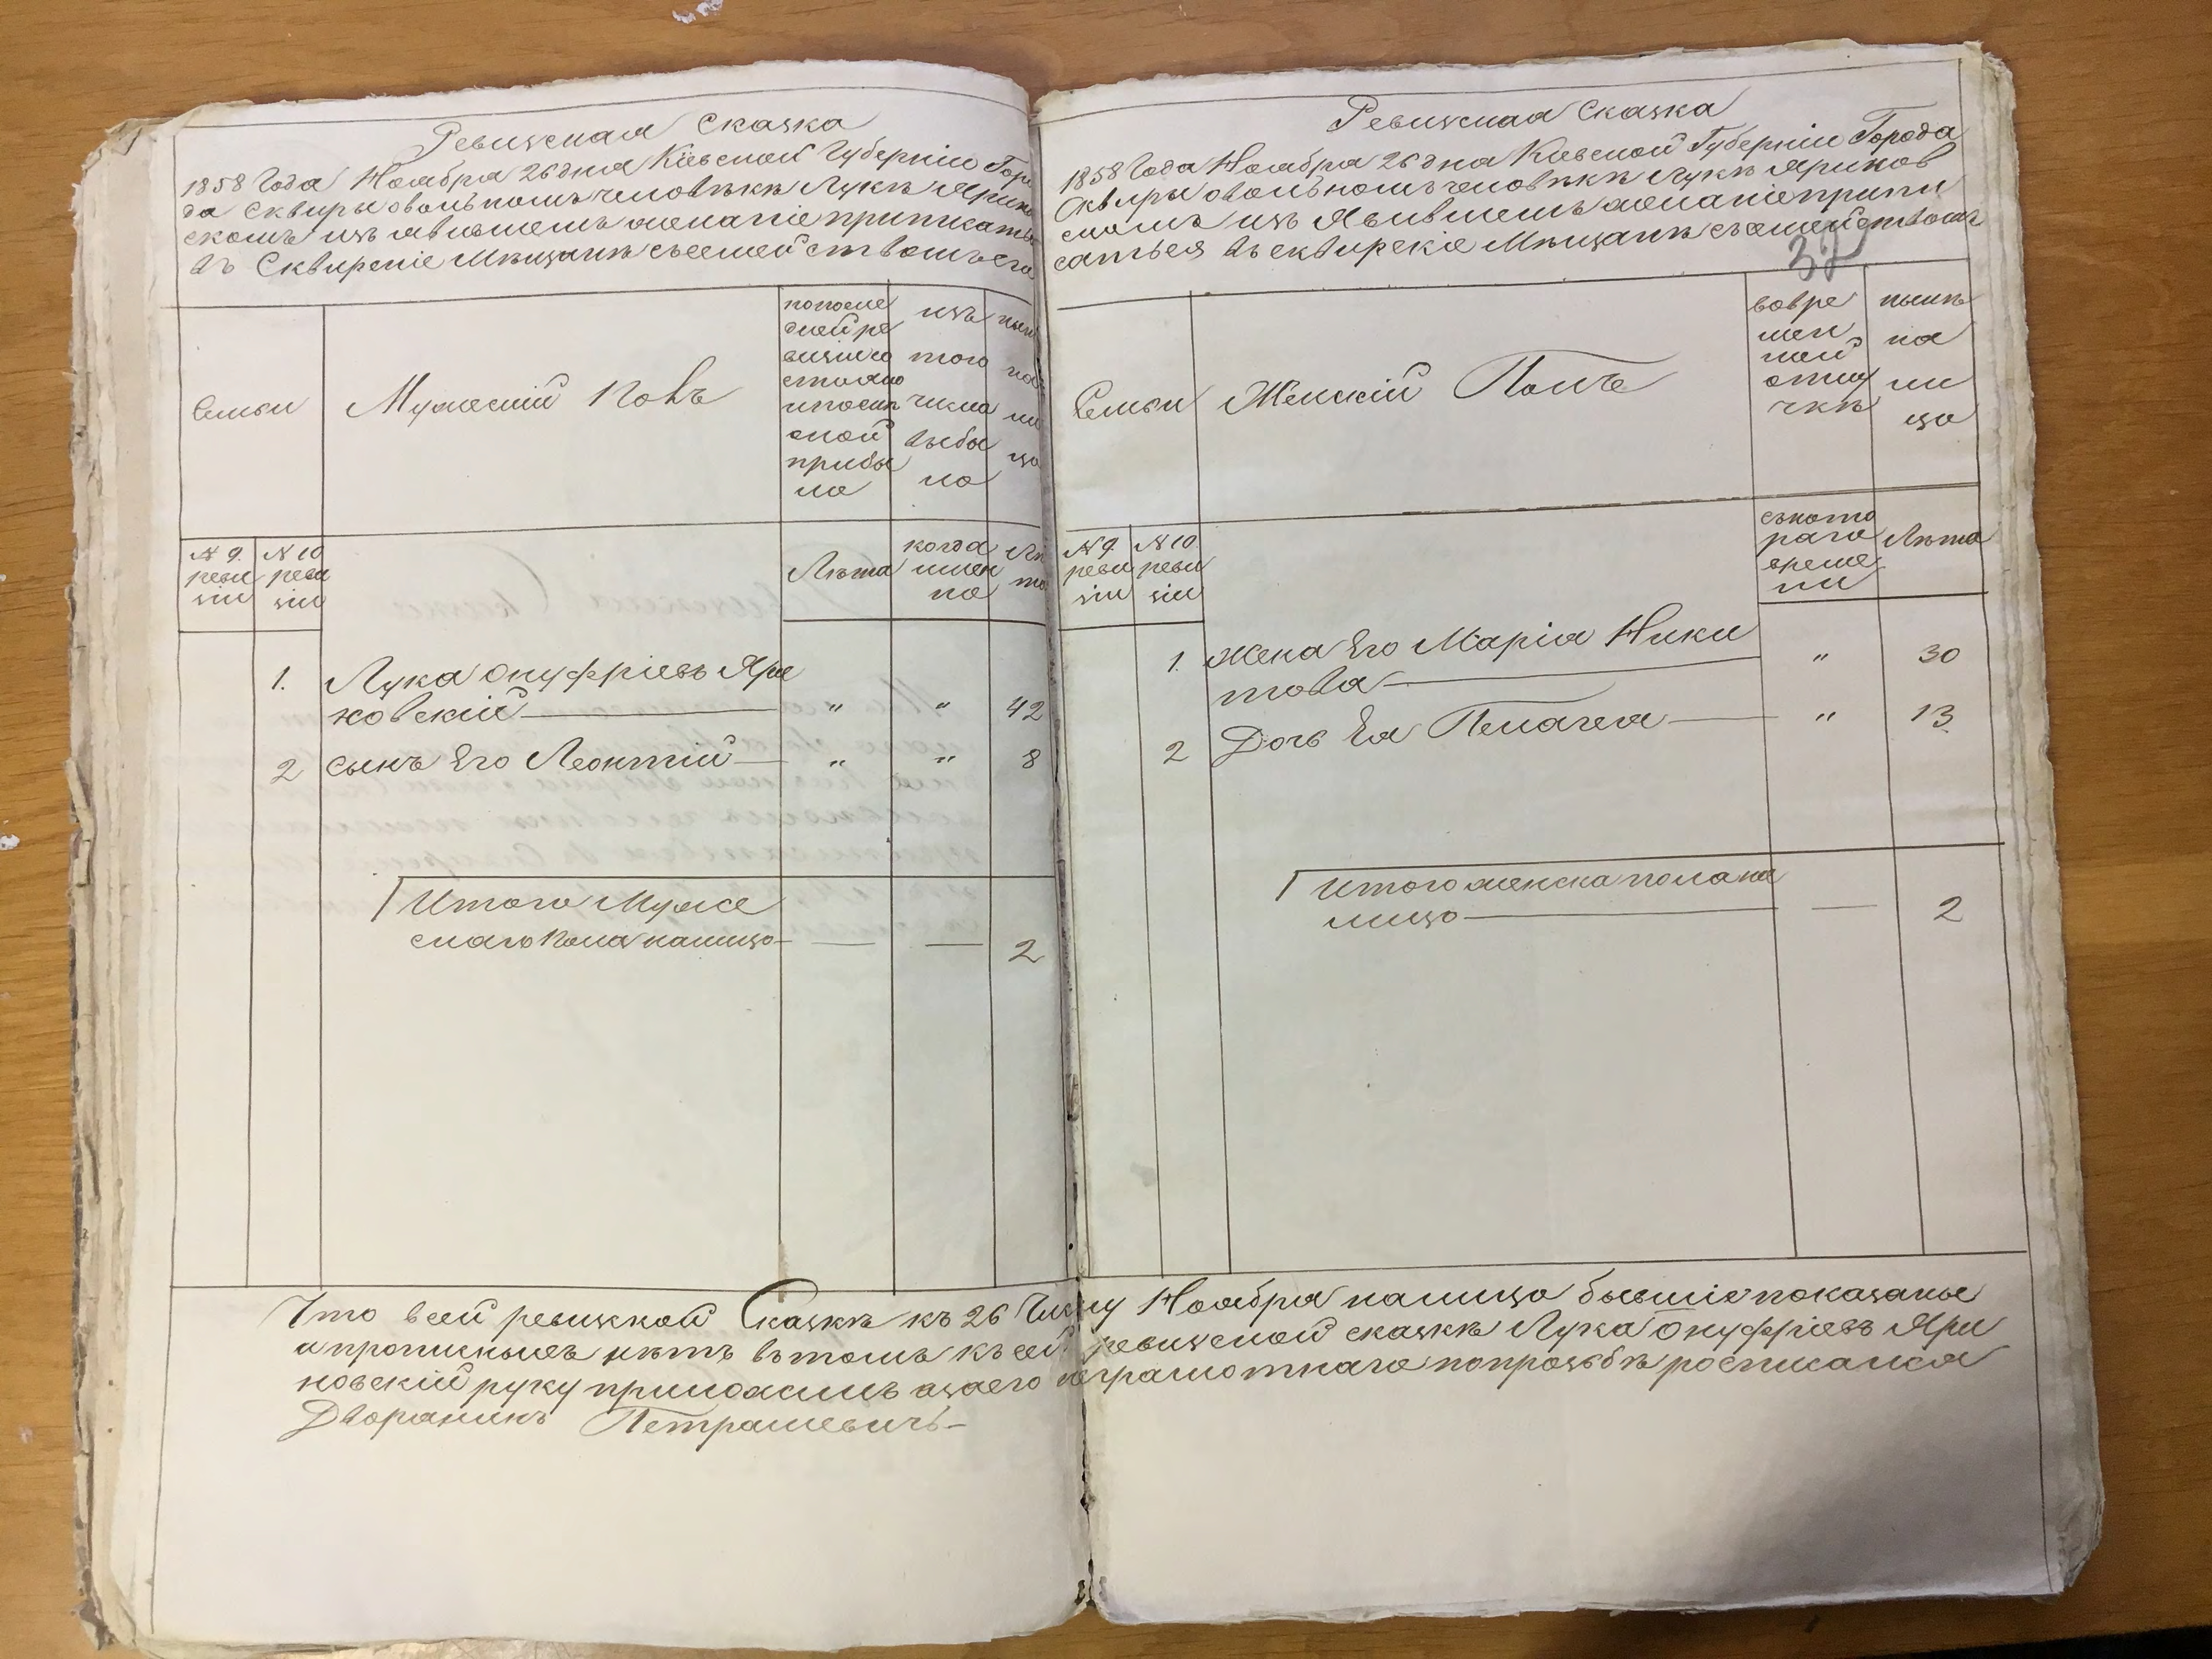 Ревизская Сказка
1858 Года Ноября 26 дня Кіевской Губерніи Горо
да Сквиры овольномъ человѣкѣ Лукѣ Ярино
скомъ изъ явившемъ желаніе приписатся
въ Сквирскіе Мѣщанѣ съсемействомъ его
Семьи
Мужескій Полъ
попосле
дней ре
визіи со
стояло
ипослѣ
оной
прибы
ло
изъ
того
числа
выбы
ло
нын
на
ли
цо
№ 9.
реви
зіи
№ 10
реви
зіи
Лѣта
когда
имен
но
Лѣ
та
1. Лука Онуфріевъ Яри
новскій " " 42
2 сынъ Его Леонтій " " 8
Итого Муже
скаго Пола налицо 2
Ревизская Сказка
1858 Года Ноября 26 дня Кіевской Губерніи Города
Сквиры овольномъ человѣкѣ Лукѣ Яринов
скомъ изъ Явившемъ желаніе припи
саться въ сквирскіе Мѣщанѣ съсемействомъ
32
Семьи
Женскій Полъ
вовре
мен
ной
отлу
чкѣ
нынѣ
на
ли
цо
№ 9.
реви
зіи
№ 10
реви
зіи
съкото
раго
време
ни
Лѣта
1. жена Его Марія Ники
това " 30
2 Дочь Ея Пелагея " 13
Итого женска пола на
лицо 2
Что всей ревизской Сказкѣ къ 26 Числу Ноября налицо бывшіе показаны
а прописныхъ нѣтъ вътомъ къ сей ревизской сказкѣ Лука Онуфріевъ Яри
новскій руку приложилъ азаего неграмотнаго попрозьбѣ росписался
Дворянинъ Петрашевичъ